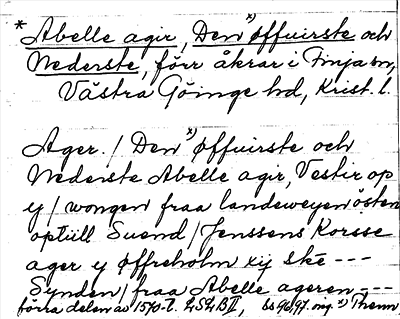 * Abelle agir, Den x) øffuirste och
Nederste, förr åkrar i Finja sn,
Västra Göinge hd, Krist. l.
Ager. / Den x) øffuirste och
Nederste Abelle agir, Vestir op
y / wongen fraa landeweyen östen
optiill Suend / Jenssens Korsse
ager y øffreholm xij skè ---
Synden / fraa Abelle ageren ---
förra delen av 1570-t. LSLB II, bs 96, 97.